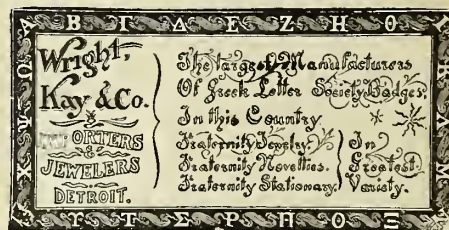 Α Β Γ Δ Ε Ζ Η Θ Ι
Wright,
Kay & Co.
IMPORTERS
&
JEWELERS
DETROIT.
The Largest Manufacturers
Of Greek Letter Society Badges,
In this Country.
Fraternity Jewelry
Fraternity Novelties.
Fraternity Stationary,
In
Greatest
Variety.
Υ Τ Σ Ρ Π Ο Ξ